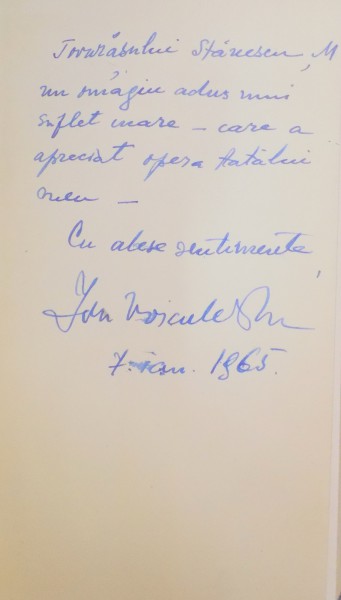 Tovarăsului Stănescu M
un omăgiu adus unui
suflet mare – care a
apreciat opera tatălui
meu –
Cu alese sentimente,
Ion Voiculescu
7. ian. 1965.